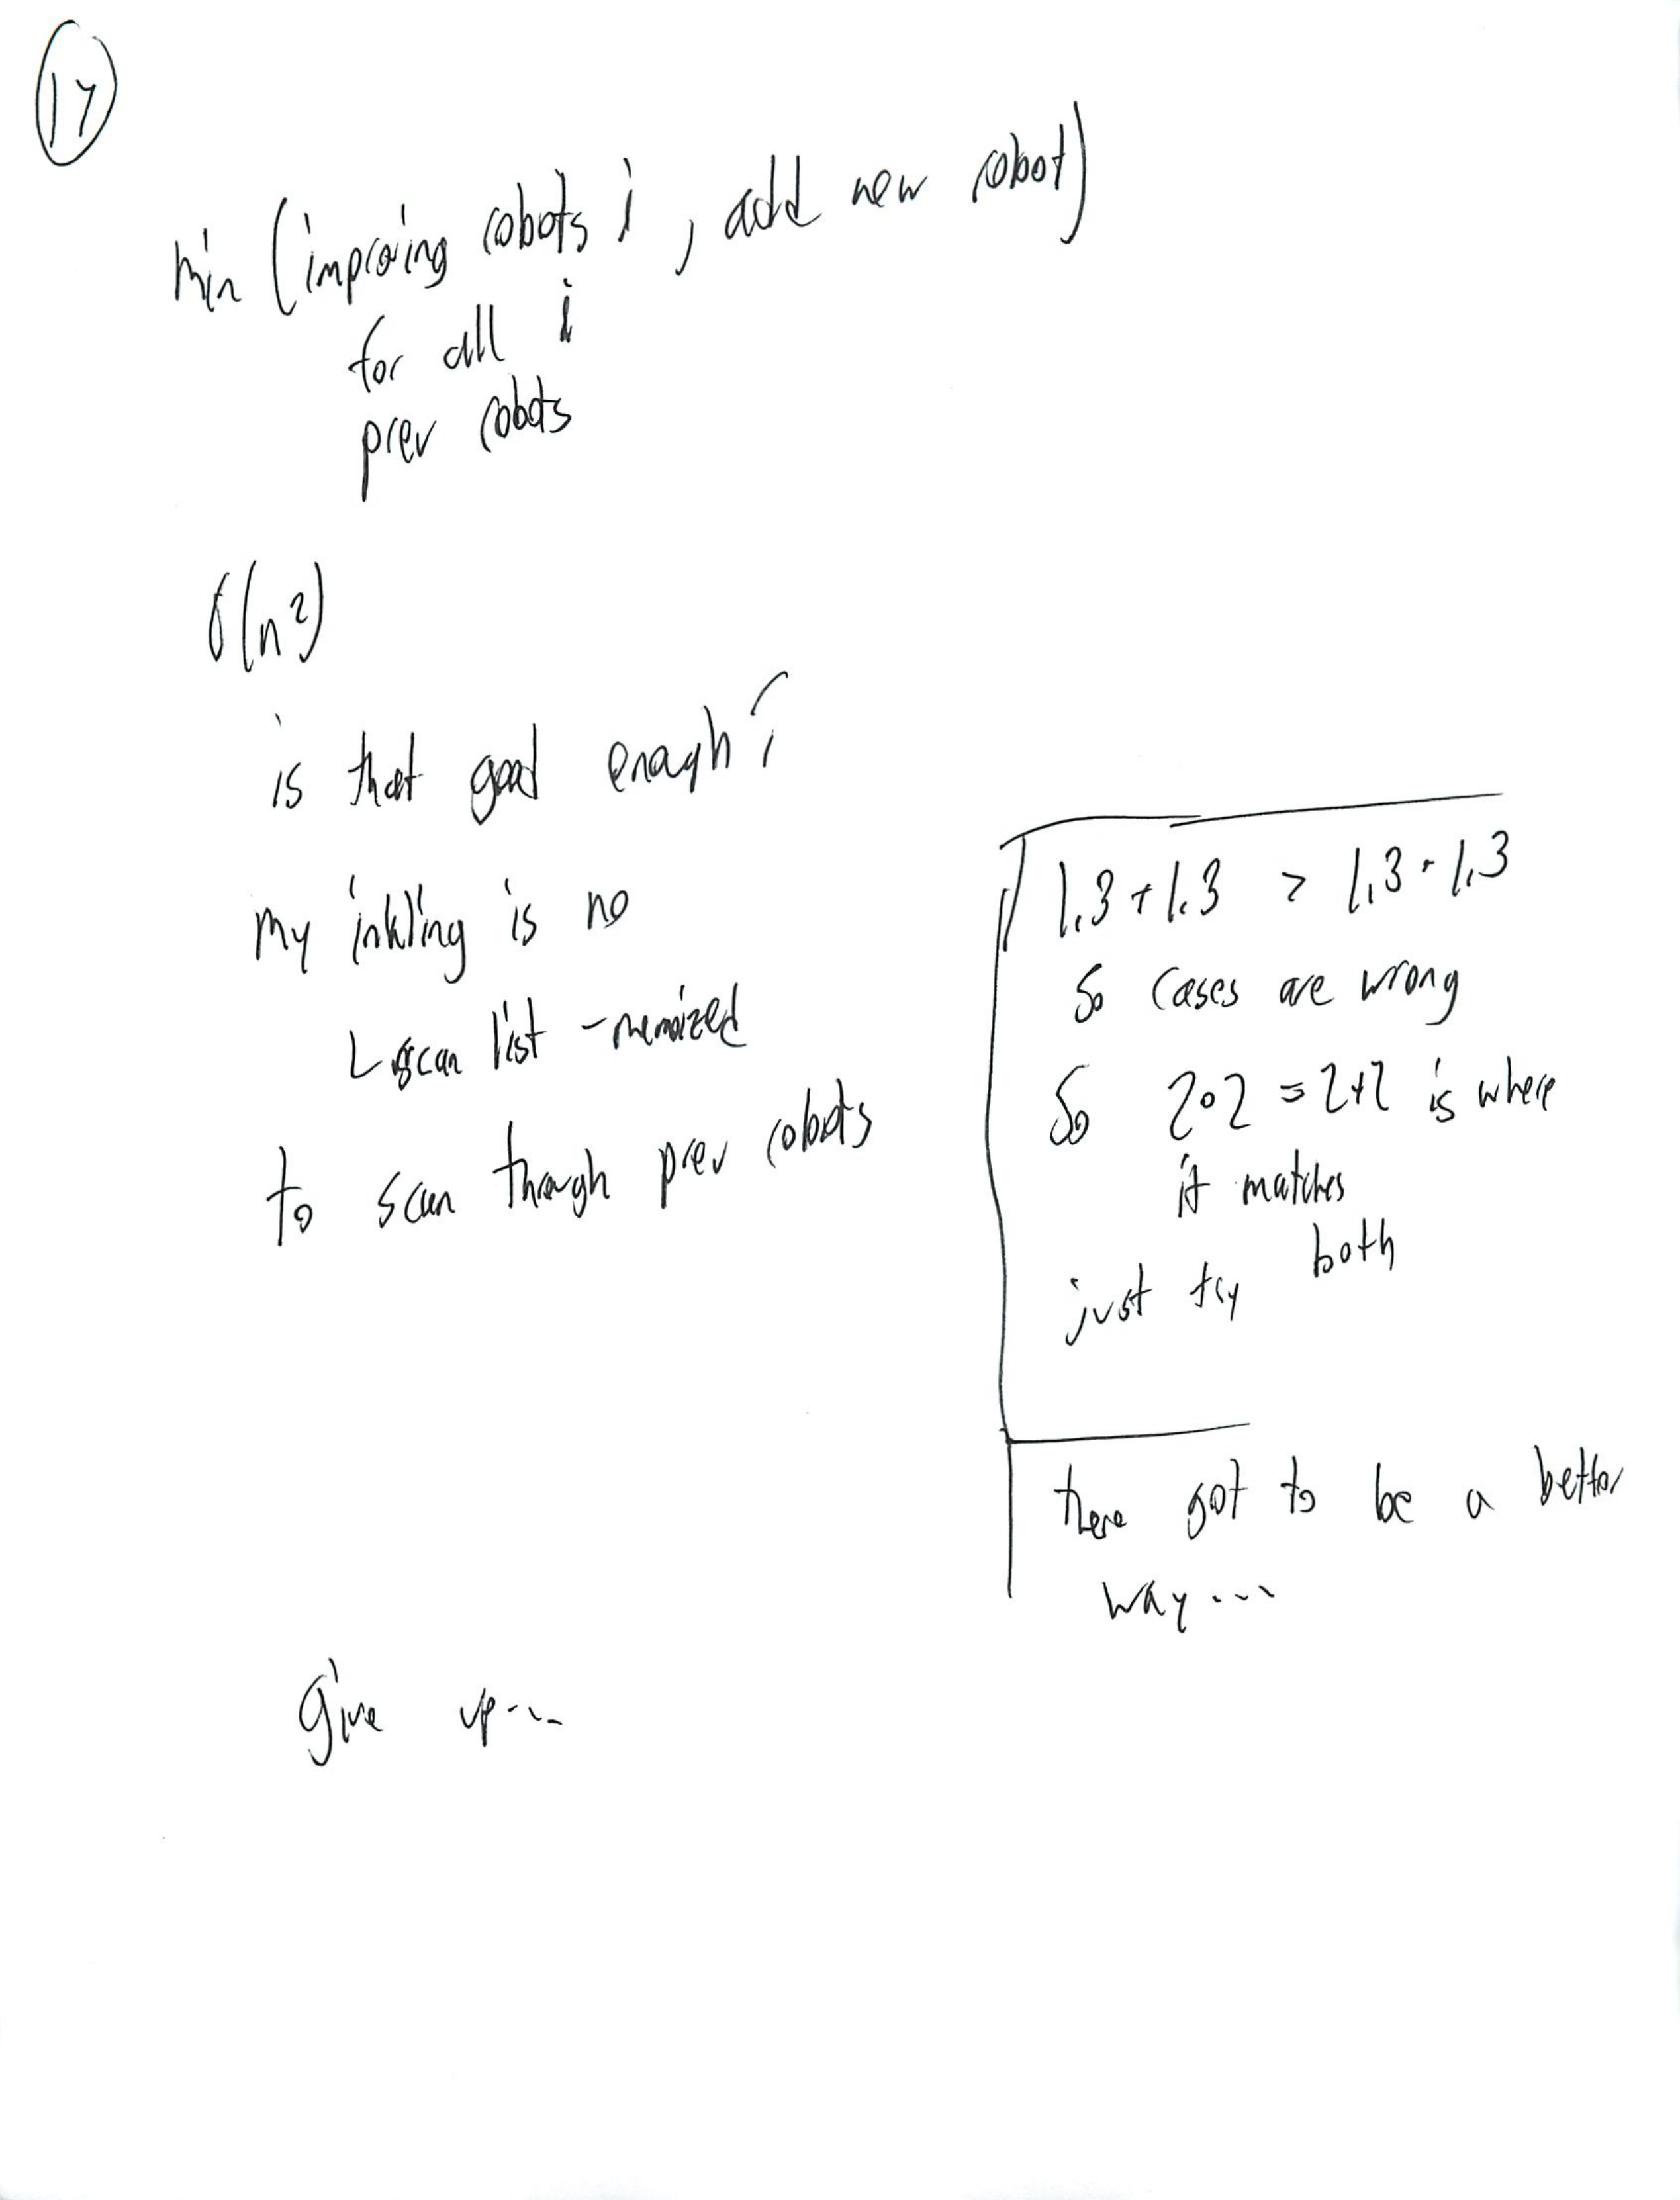 17
min (improving robots i, add new robot)
for all i
prev robots
O(n²)
is that good enough?
my inkling is no
scan list - memoized
to scan through prev robots
1.3 + 1.3 > 1.3 · 1.3
So cases are wrong
So 2·2 = 2+2 is where
it matches
both
just try
there got to be a better
way...
give up...